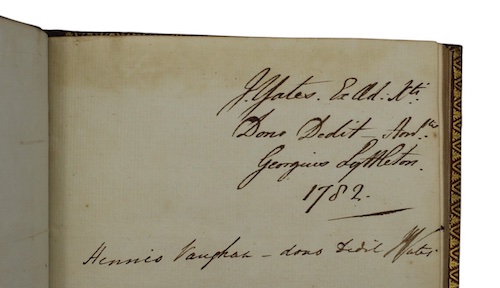 J. Yates. Ex Æd: Xti
Dono Dedit Hon.
Georgius Lyttleton.
1782.
Hennis Vaughan – dono dedit Yates